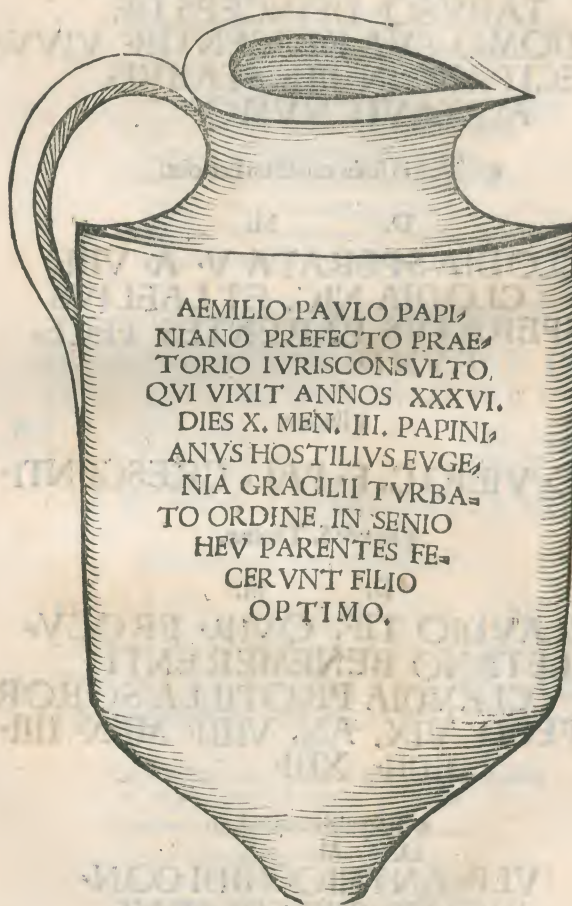 AEMILIO PAVLO PAPI-
NIANO PREFECTO PRAE-
TORIO IVRISCONSVLTO.
QVI VIXIT ANNOS XXXVI.
DIES X. MEN. III. PAPINI-
ANVS HOSTILIVS EVGE-
NIA GRACILII TVRBA-
TO ORDINE. IN SENIO
HEV PARENTES FE-
CERVNT FILIO
OPTIMO.